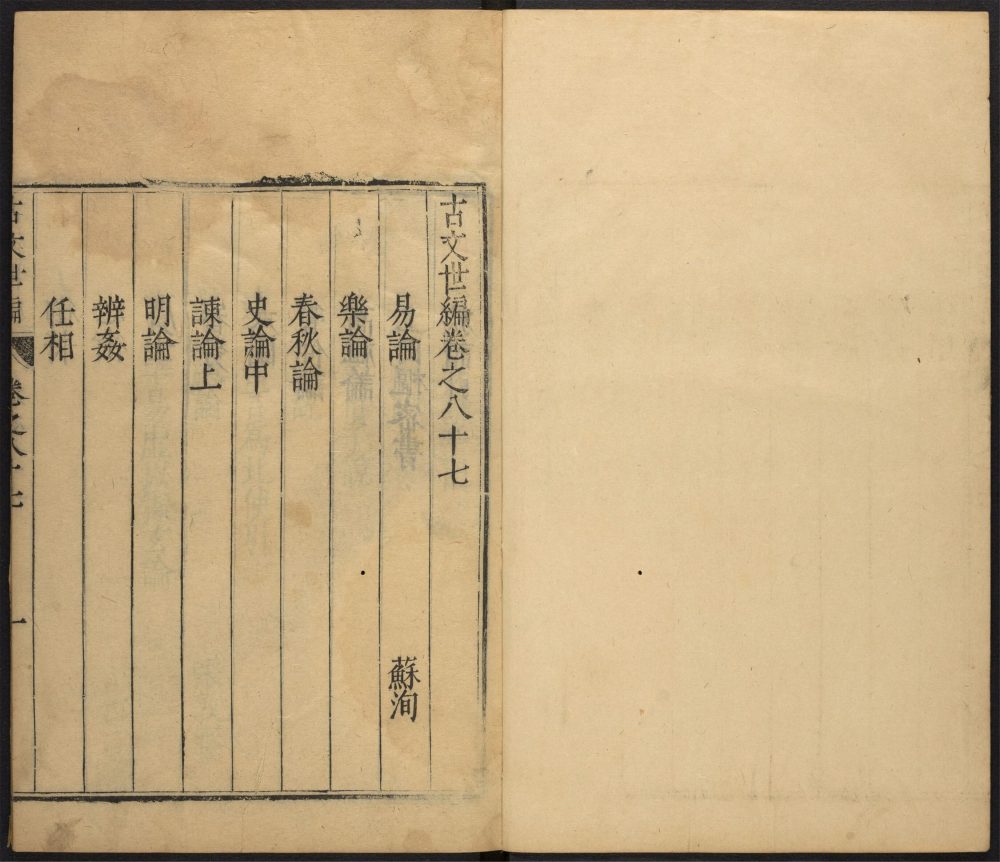 古文世編卷之八十七
易論 蘇洵
樂論
春秋論
史論中
諫論上
明論
辨姦
任相
古文世編 卷之八十七 一